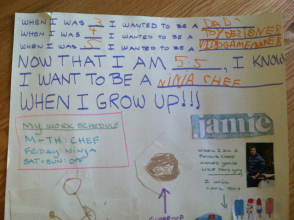 WHEN I WAS 3 I WANTED TO BE A DAD
WHEN I WAS 4 I WANTED TO BE A TOY DESIGNER
WHEN I WAS 5 I WANTED TO BE A VIDEOGAME MAKER
NOW THAT I AM 5.5, I KNOW
I WANT TO BE A NINJA CHEF
WHEN I GROW UP!!!
MY WORK SCHEDULE
M-TH: CHEF
FRIDAY: NINJA
SAT+SUN: OFF
jamie
WHEN I AM A
FAMOUS CHEF
I WILL